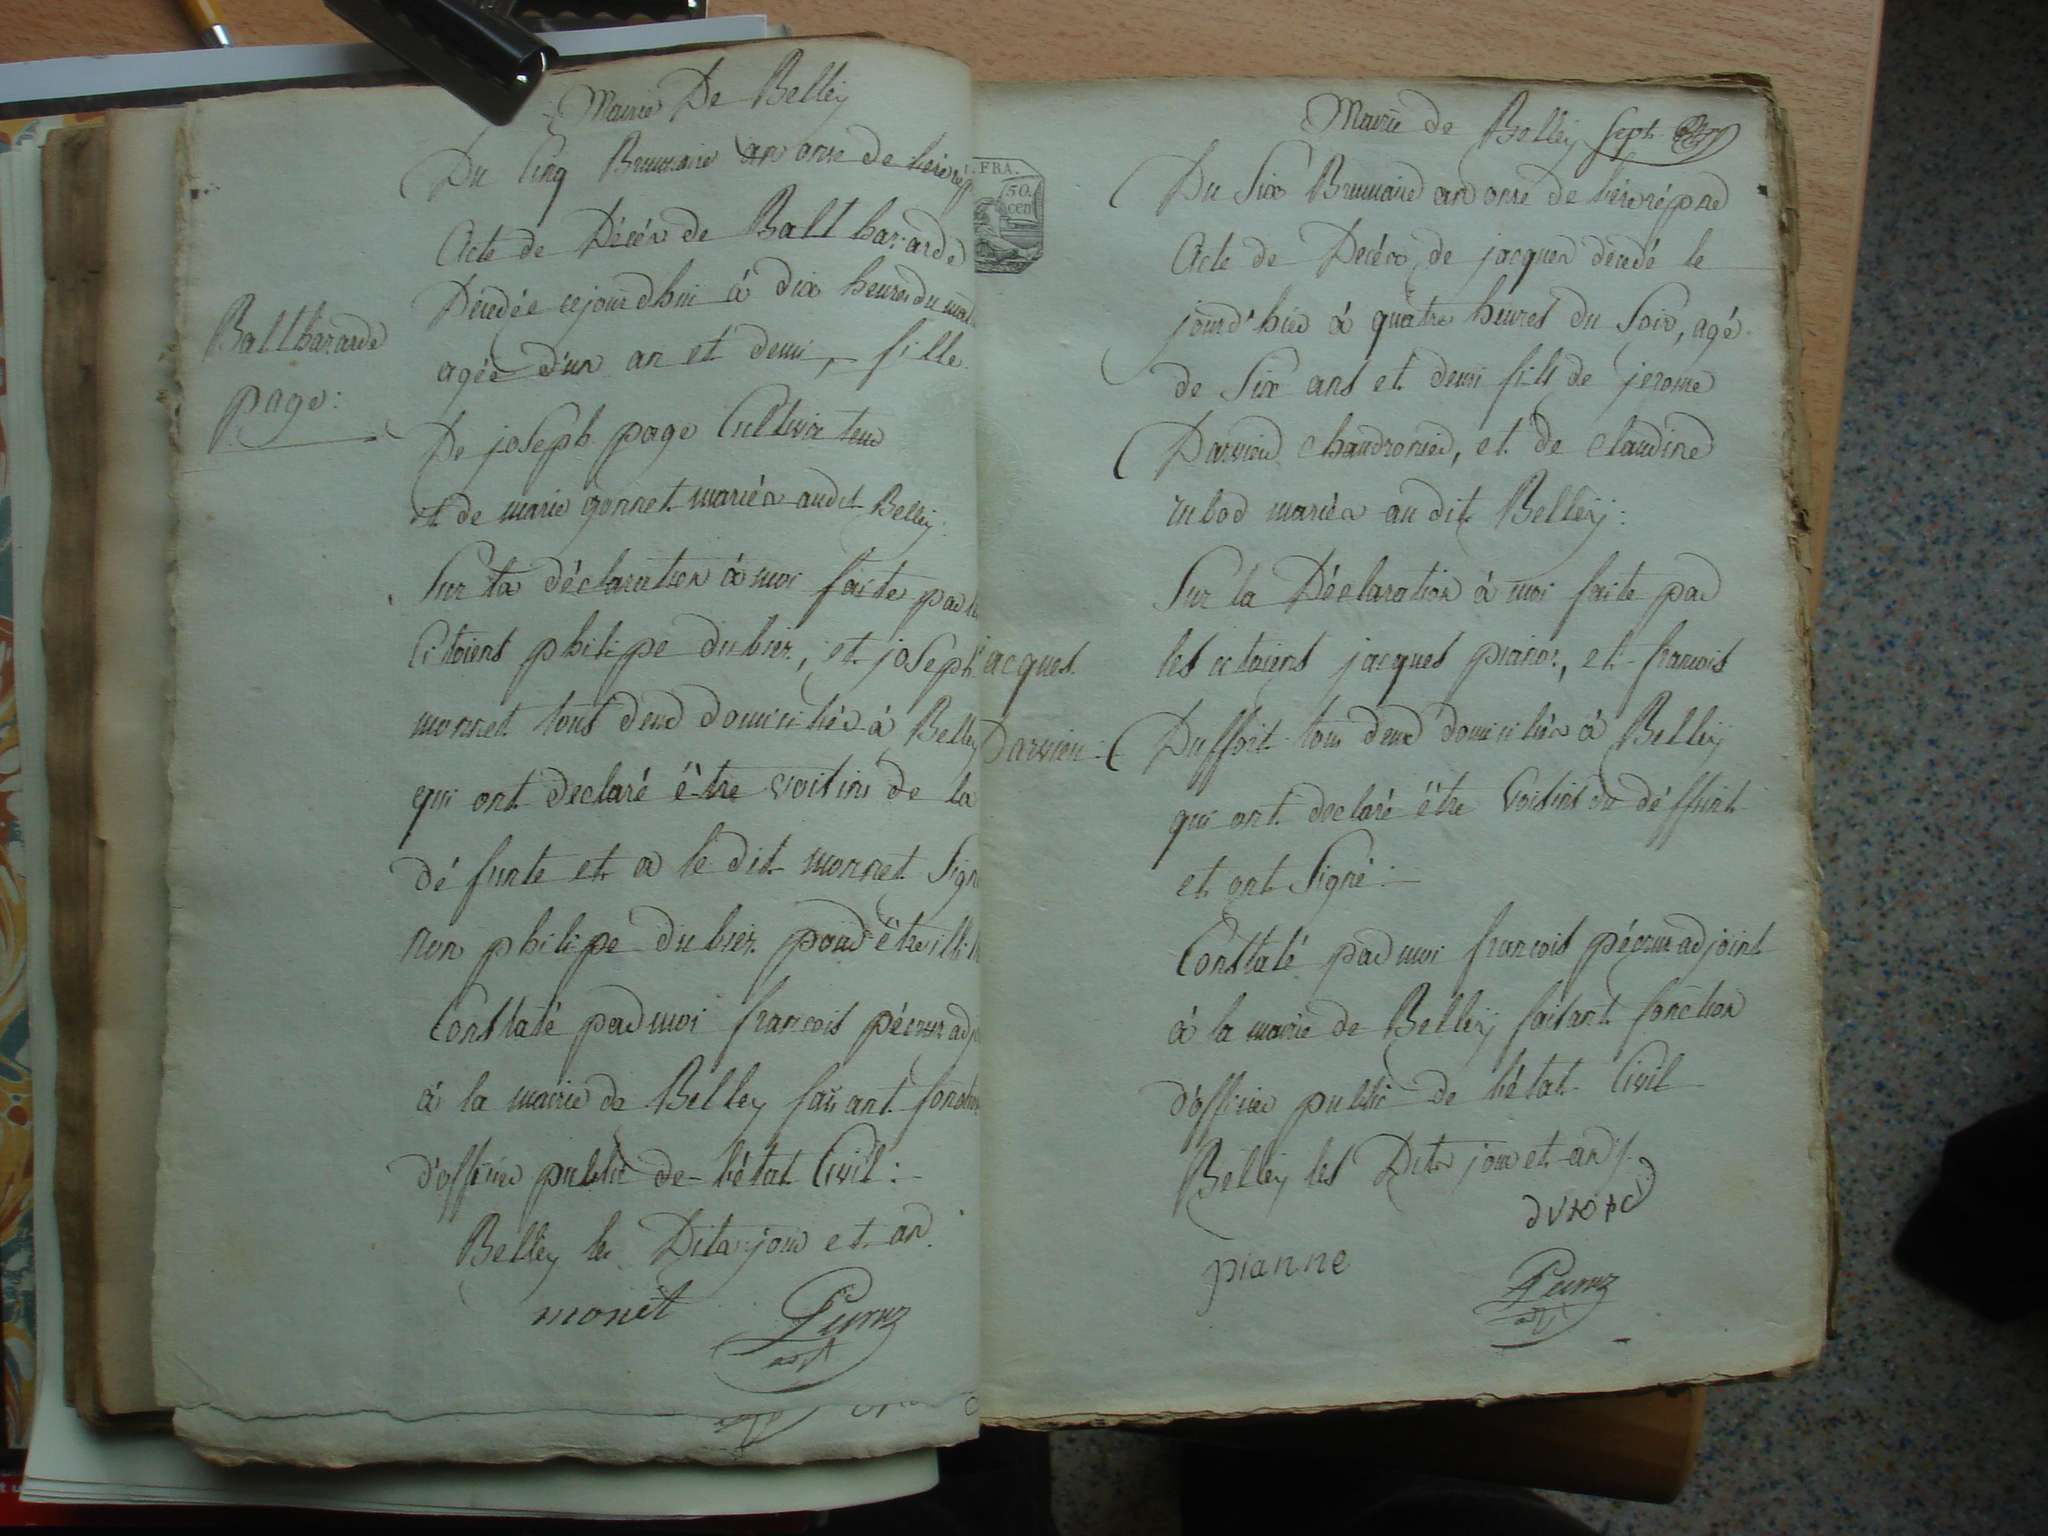 Mairie De Belley
Du Cinq Brumaire an onze de l'ère rép
Acte de Décès de Balthazarde
Décédée cejourdhui à dix heures du mat
agée d'un an et demi, fille
De joseph page Cultivateur
et de marie gonnet mariés audit Belley:
Sur la déclaration à moi faite par le
Citoiens philipe dubiez, et joseph
monnet tous deux domiciliés à Belley
qui ont declaré être voisins de la
défunte et a le dit monnet Signé
non philipe dubiez pour être illit
Constaté par moi francois pécour adj
à la mairie de Belley faisant fonction
d'officier public de l'état Civil:
Belley les Dits jour et an
monet
Balthazarde
page:
Mairie de Belley Sept
. FRA.
50.
cen
Du Six Brumaire an onze de l'ère répne
Acte de Décès de jacques décédé le
jourd'hier à quatre heures du Soir, agé
de Six ans et demi fils de jerome
Darvieu chaudronier, et de claudine
rubod mariés au dit Belley:
Sur la Déclaration à moi faite par
les citoiens jacques, et francois
Duffort tous deux domiciliés à Belley
qui ont declaré être Voisins du déffunt
et ont Signé:
Constaté par moi francois pécour adjoint
à la mairie de Belley faisant fonction
d'officier public de l'état Civil
Belley les Dits jour et an
pianne
jacques
Darvieu: